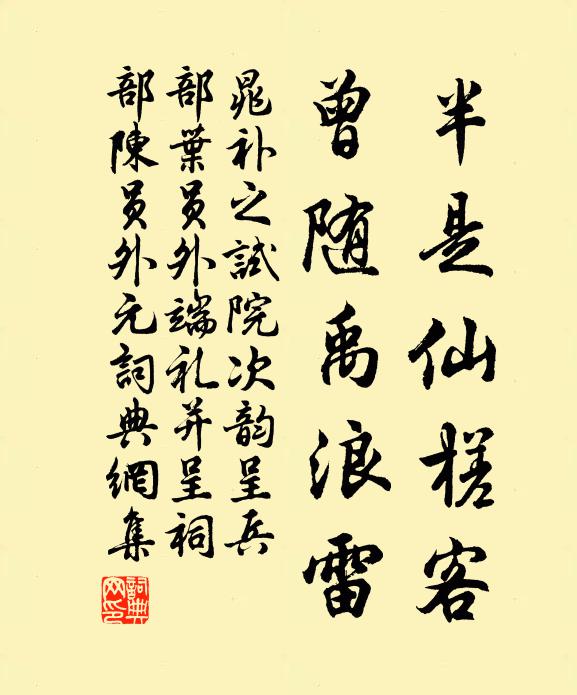 半是仙槎客
曾随禹浪雷
晁补之試院次韵呈兵
部葉员外端礼并呈祠
部陳员外元詞典網集
詞典網印